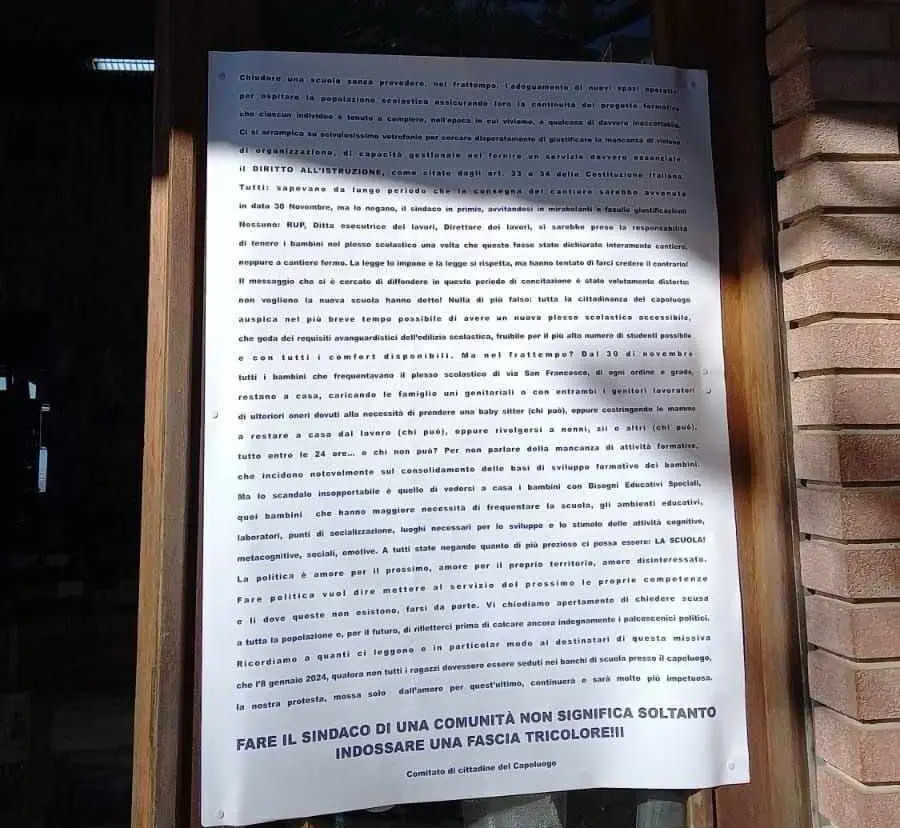 Chiudere una scuola senza provedere, nel frattempo, l'adeguamento di nuovi spazi operativi
per ospitare la popolazione scolastica assicurando loro la continuità del progetto formativo
che ciascun individuo è tenuto a compiere, nell'epoca in cui viviamo, è qualcosa di davvero inaccettabile.
Ci si arrampica su scivolosissimo vetrofanie per cercare disperatamente di giustificare la mancanza di visione
di organizzazione, di capacità gestionale nel fornire un servizio davvero essenziale
il DIRITTO ALL'ISTRUZIONE, come citato dagli art. 33 e 34 della Costituzione Italiana.
Tutti: sapevano da lungo periodo che la consegna del cantiere sarebbe avvenuta
in data 30 Novembre, ma lo negano, il sindaco in primis, avvitandosi in mirabolanti e fasulle giustificazioni
Nessuno: RUP, Ditta esecutrice dei lavori, Direttore dei lavori, si sarebbe preso la responsabilità
di tenere i bambini nel plesso scolastico una volta che questo fosse stato dichiarato interamente cantiere,
neppure a cantiere fermo. La legge lo impone e la legge si rispetta, ma hanno tentato di farci credere il contrario!
Il messaggio che si è cercato di diffondere in questo periodo di concitazione è stato volutamente distorto:
non vogliono la nuova scuola hanno detto! Nulla di più falso: tutta la cittadinanza del capoluogo
auspica nel più breve tempo possibile di avere un nuovo plesso scolastico accessibile,
che goda dei requisiti avanguardistici dell'edilizia scolastica, fruibile per il più alto numero di studenti possibile
e con tutti i comfort disponibili. Ma nel frattempo? Dal 30 di novembre
tutti i bambini che frequentavano il plesso scolastico di via San Francesco, di ogni ordine e grado,
restano a casa, caricando le famiglie uni genitoriali o con entrambi i genitori lavoratori
di ulteriori oneri dovuti alla necessità di prendere una baby sitter (chi può), oppure costringendo le mamme
a restare a casa dal lavoro (chi può), oppure rivolgersi a nonni, zii o altri (chi può),
tutto entro le 24 ore... e chi non può? Per non parlare della mancanza di attività formative,
che incidono notevolmente sul consolidamento delle basi di sviluppo formativo dei bambini.
Ma lo scandalo insopportabile è quello di vedersi a casa i bambini con Bisogni Educativi Speciali,
quei bambini che hanno maggiore necessità di frequentare la scuola, gli ambienti educativi,
laboratori, punti di socializzazione, luoghi necessari per lo sviluppo e lo stimolo delle attività cognitive,
metacognitive, sociali, emotive. A tutti state negando quanto di più prezioso ci possa essere: LA SCUOLA!
La politica è amore per il prossimo, amore per il proprio territorio, amore disinteressato.
Fare politica vuol dire mettere al servizio del prossimo le proprie competenze
e lì dove queste non esistono, farsi da parte. Vi chiediamo apertamente di chiedere scusa
a tutta la popolazione e, per il futuro, di rifletterci prima di calcare ancora indegnamente i palcoscenici politici.
Ricordiamo a quanti ci leggono e in particolar modo ai destinatari di questa missiva
che l'8 gennaio 2024, qualora non tutti i ragazzi dovessero essere seduti nei banchi di scuola presso il capoluogo,
la nostra protesta, mossa solo dall'amore per quest'ultimo, continuerà e sarà molto più impetuosa.
FARE IL SINDACO DI UNA COMUNITÀ NON SIGNIFICA SOLTANTO
INDOSSARE UNA FASCIA TRICOLORE!!!
Comitato di cittadine del Capoluogo